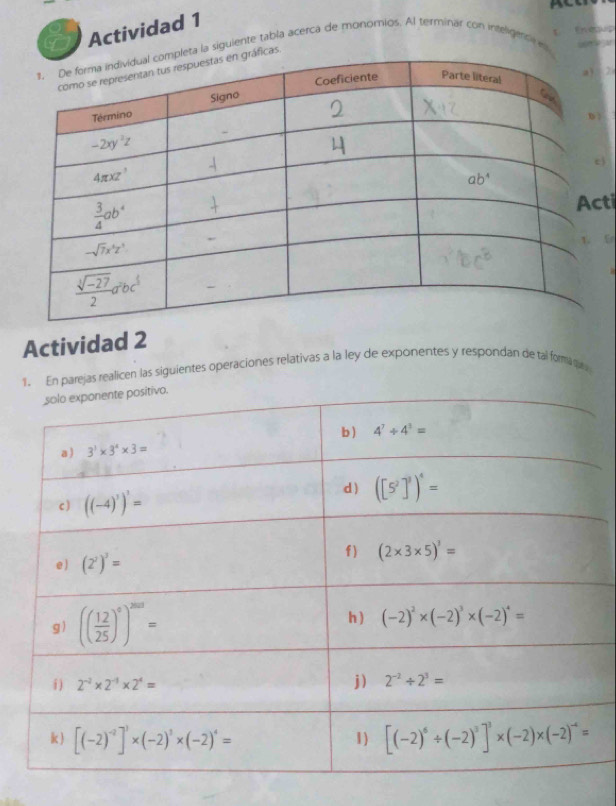 Actividad 1
1. De forma individual completa la siguiente tabla acerca de monomios. Al terminar con
como se representan tus respuestas en gráficas.
Término Signo Coeficiente Parte literal
-2xy²z - 2 x+z
4πxz³ + 4
3/4 ab⁴ + ab⁴
-√7x⁵z³ -
∛-27/2 a²bc⁵ - bc⁸
Acti
Actividad 2
1. En parejas realicen las siguientes operaciones relativas a la ley de exponentes y respondan de tal forma que
solo exponente positivo.
a) 3³ × 3⁴ × 3 =
b) 4⁷ ÷ 4⁵ =
c) ((-4)³)³ =
d) ([5²]³)⁴ =
e) (2²)³ =
f) (2 × 3 × 5)³ =
g) ((12/25)⁰)²⁰²³ =
h) (-2)² × (-2)³ × (-2)⁴ =
i) 2⁻² × 2⁻³ × 2⁴ =
j) 2⁻² ÷ 2³ =
k) [(-2)⁻²]³ × (-2)³ × (-2)⁴ =
l) [(-2)⁶ ÷ (-2)³]³ × (-2) × (-2)⁻⁴ =